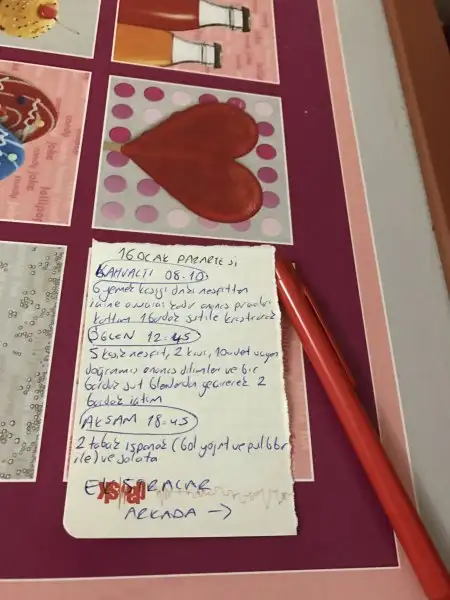 16 OCAK PAZARTESİ
KAHVALTI 08.10
6 yemek kaşığı dolusu nesfitin
içine avucum kadar ananas parçaları
kattım 1 bardak süt ile karıştırarak
ÖĞLEN 12:45
5 kaşık nesfit, 2 kivi, 10 adet uzun
doğranmış ananas dilimleri ve bir
bardak süt blenderdan geçirerek 2
bardak içtim
AKŞAM 18:45
2 tabak ıspanak (bol yoğurt ve pul biber
ile) ve salata
EK SORACLAR
ARKADA →
candy
joke
lollipop